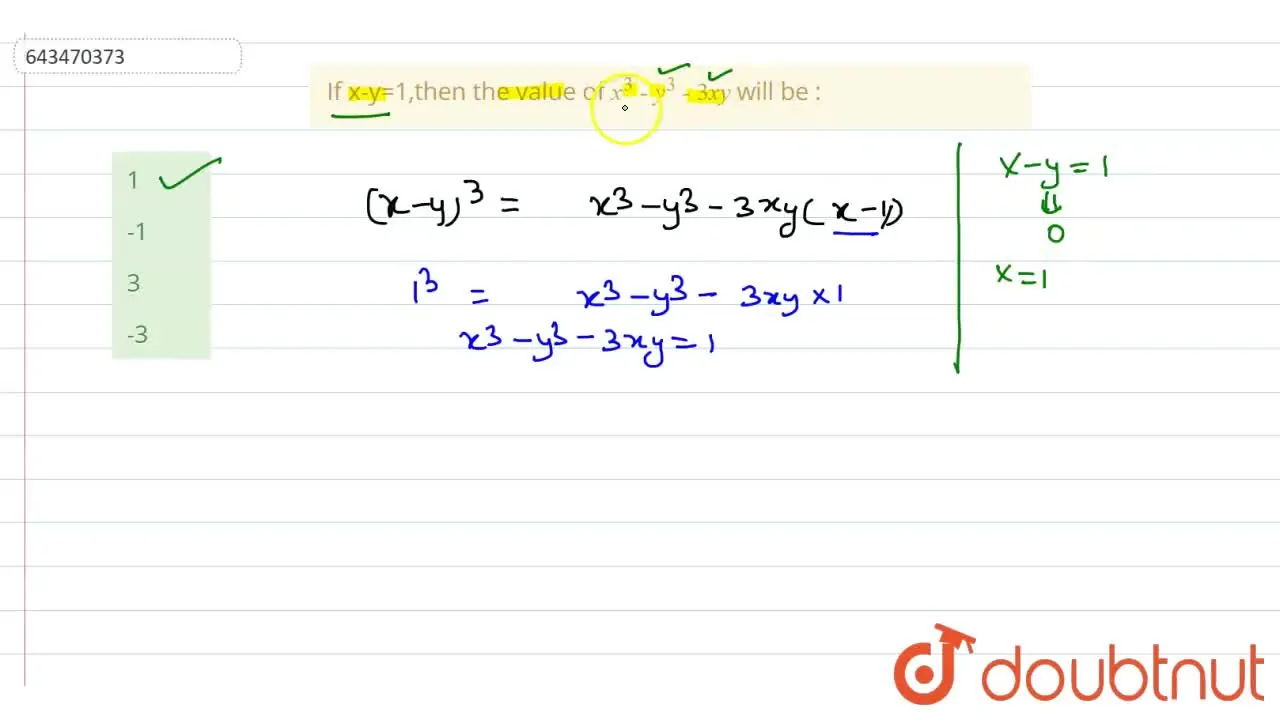 643470373
If x-y=1,then the value of x³ - y³ - 3xy will be :
1
-1
3
-3
(x-y)³ = x³-y³-3xy(x-y)
1³ = x³-y³-3xy×1
x³-y³-3xy=1
x-y=1
0
x=1
doubtnut